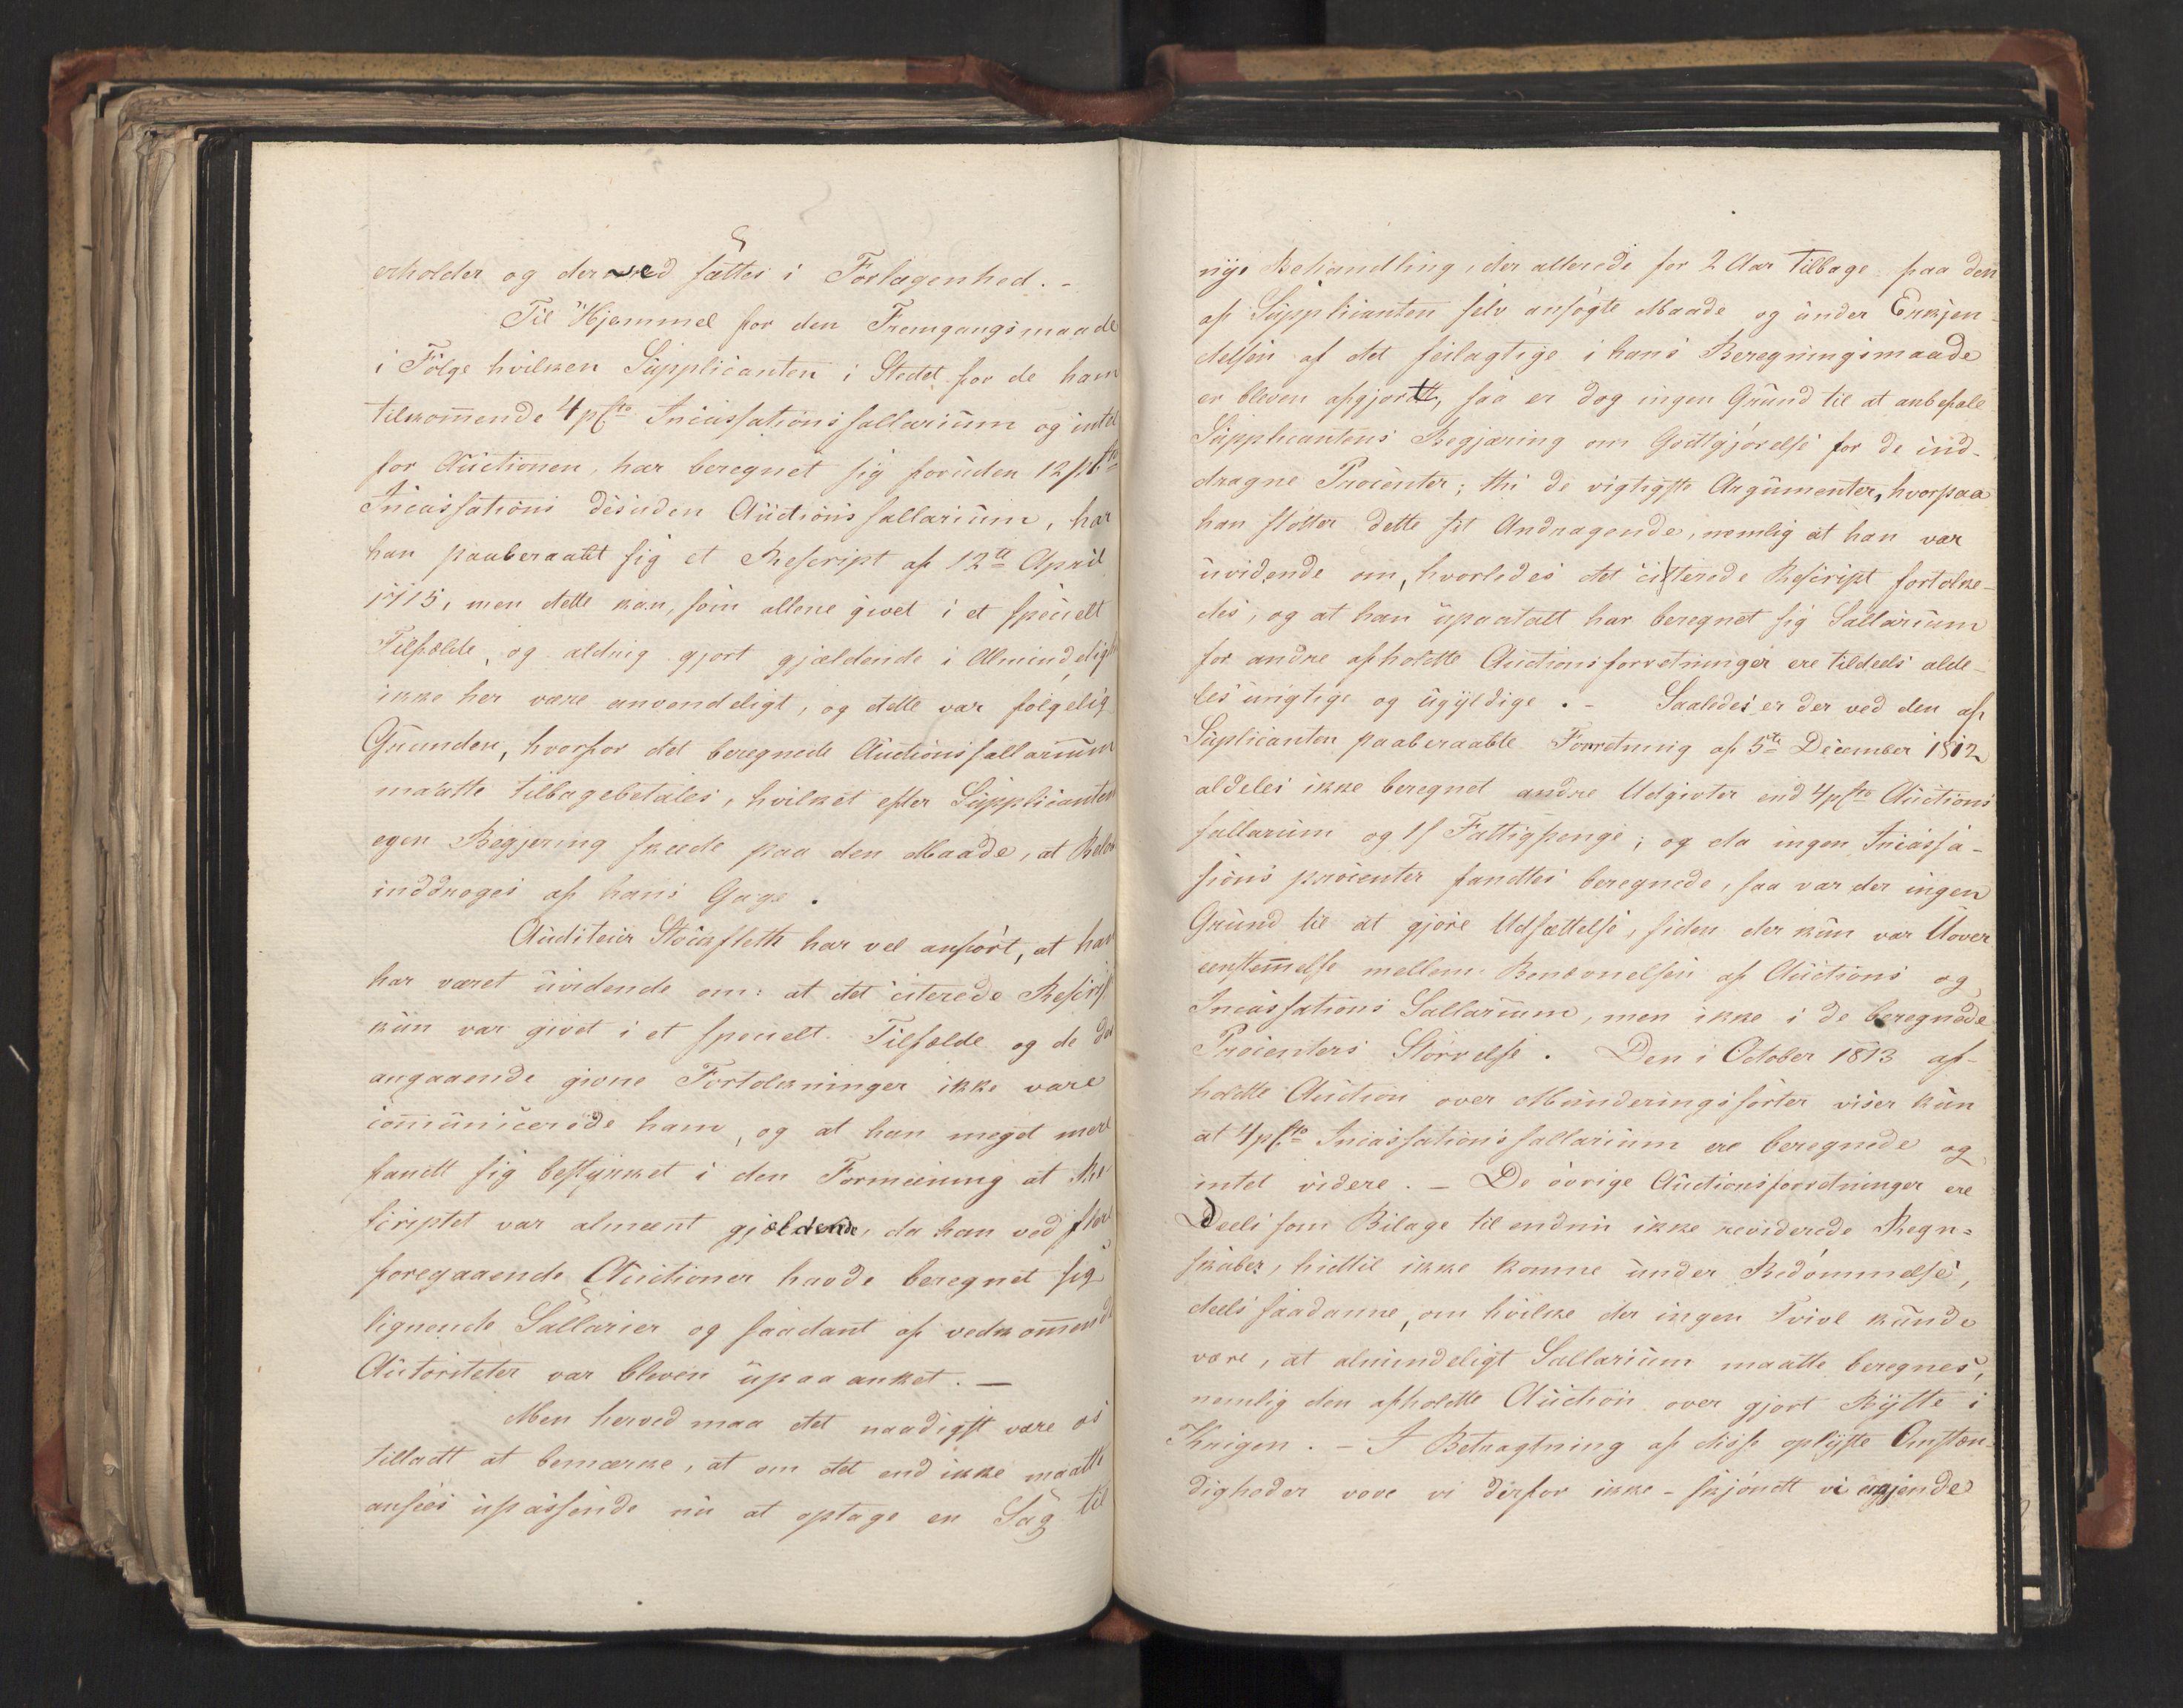 erholder og derved sættes i Forlagenhed. -
Til Hjemmel for den Fremgangsmaade
i Følge hvilken Supplicanten i Stedet for de ham
tilkom̄ende 4 pCto Incassations sallarium og intet
for Auctionen, har beregnet sig foruden 12 pCto
Incassations desuden Auctions sallarium, har
han paaberaabt sig et Rescript af 12te April
1715, men dette kan, som allene givet i et specielt
Tilfælde, og aldrig gjort gjældende i Almindelighed
ikke her være anvendeligt, og dette var følgelig
Grunden, hvorfor det beregnede Auctionssallarium
maatte tilbagebetales, hvilket efter Supplicanten
egen Begjering skeede paa den Maade, at Beløb
inddroges af hans Gage.
Auditeur Stockfleth har vel anført, at han
har været uvidende om: at det citerede Rescript
kun var givet i et specielt Tilfælde og de der
angaaende givne Fortolkninger ikke vare
com̄unicerede ham, og at han meget mere
fandt sig bestyrket i den Formeening at Re-
scriptet var almeent gjeldende, da han ved flere
foregaaende Auctioner havde beregnet sig
lignende Sallarier og saadant af vedkom̄ende
Autoriteter var bleven upaaanket. -
Men herved maa det naadigst være os
tilladt at bemærke, at om det end ikke maatte
ansees upassende nu at optage en Sag til
nye Behandling, der allerede for 2 Aar tilbage paa den
af Supplicanten selv ansøgte Maade og under Erkjen-
delsen af det feilagtige i hans Beregningsmaade
er bleven afgjordt, saa er dog ingen Grund til at anbefale
Supplicantens Begjæring om Godtgjørelse for de ind-
dragne Procenter; thi de vigtigste Argumenter, hvorpaa
han støtter dette sit Andragende, nemlig at han var
uvidende om, hvorledes det citerede Rescript fortolke-
des, og at han upaatalt har beregnet sig Sallarium
for andre afholdte Auctionsforretninger ere tildeels alde-
les urigtige og ugyldige. - Saaledes er der ved den af
Suplicanten paaberaabte Forretning af 5te December 1812
aldeles ikke beregnet andre Udgivter end 4 pCto Auctions
sallarium og 1 s Fattigpenge; og da ingen Incassa-
sions procenter fandtes beregnede, saa var der ingen
Grund til at gjøre Udsættelse, siden der kun var Uover
eenstem̄else mellem Benævnelsen af Auctions og
Incassations Sallarium, men ikke i de beregnede
Procenters Størrelse. Den i October 1813 af-
holdte Auction over Munderingssorter viser kun
at 4 pCto Incassations sallarium ere beregnede og
intet videre. - De øvrige Auctionsforretninger ere
Deels som Bilage til endnu ikke reviderede Regn=
skaber, hidtil ikke komne under Bedømmelse,
deels saadanne, om hvilke der ingen Tvivl kunde
være, at almindeligt Sallarium maatte beregnes,
nemlig den afholdte Auction over gjort Bytte i
Krigen. - I Betragtning af disse oplyste Omstæn-
digheder vove vi derfor ikke - skjøndt vi erkjende